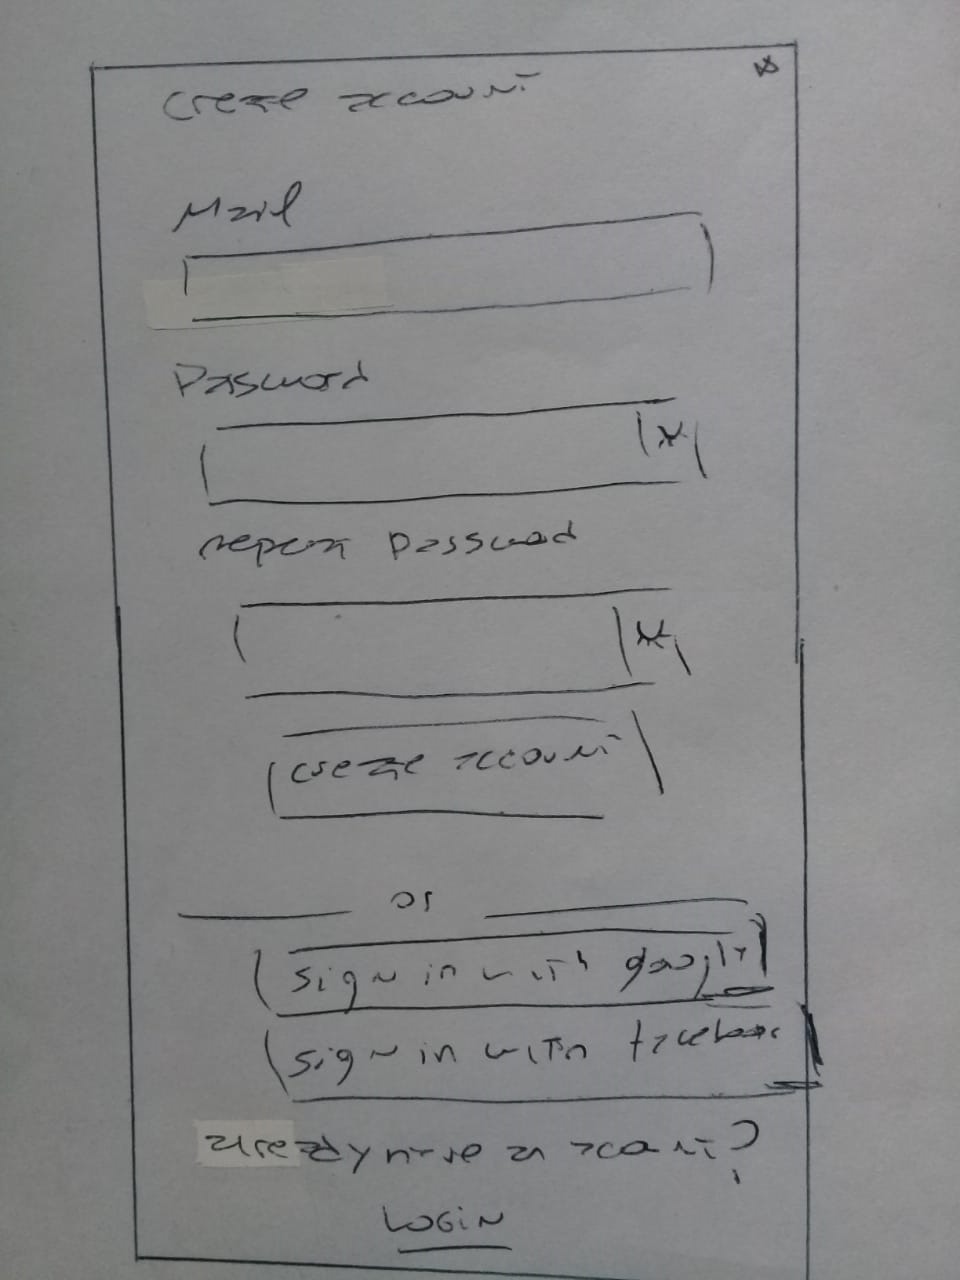 create account
Mail
Password
repeat Password
create account
or
sign in with google
sign in with facebook
already have an account?
LOGIN